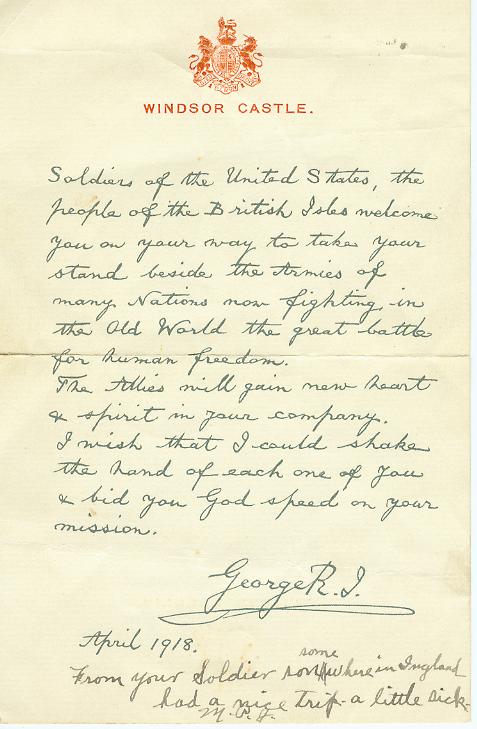 WINDSOR CASTLE.
Soldiers of the United States, the
people of the British Isles welcome
you on your way to take your
stand beside the Armies of
many Nations now fighting in
the Old World the great battle
for human freedom.
The Allies will gain new heart
& spirit in your company.
I wish that I could shake
the hand of each one of you
& bid you God speed on your
mission.
George R.I.
April 1918.
some
From your Soldier son where in Ingland
had a nice trip - a little sick-